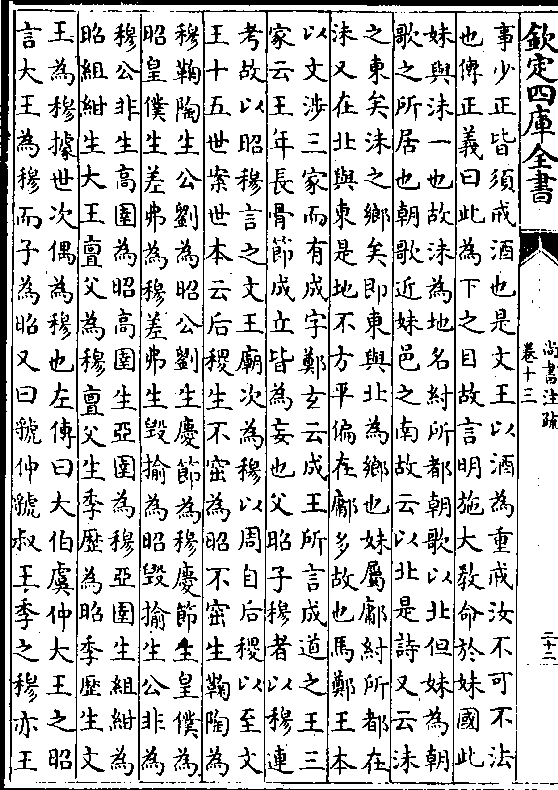 欽定四庫全書
尚書注疏
卷十三
二十二
事少正皆須戒酒也是文王以酒為重戒汝不可不法
也傳正義曰此為下之目故言明施大教命於妹國此
妹與沬一也故沬為地名紂所都朝歌以北但妹為朝
歌之所居也朝歌近妹邑之南故云以北是詩又云沬
之東矣沬之鄉矣即東與北為鄉也妹屬鄘紂所都在
沬又在北與東是地不方平偏在鄘多故也馬鄭王本
以文涉三家而有成字鄭玄云成王所言成道之王三
家云王年長骨節成立皆為妄也父昭子穆者以穆連
考故以昭穆言之文王廟次為穆以周自后稷以至文
王十五世案世本云后稷生不窋為昭不窋生鞠陶為
穆鞠陶生公劉為昭公劉生慶節為穆慶節生皇僕為
昭皇僕生差弗為穆差弗生毀揄為昭毀揄生公非為
穆公非生高圉為昭高圉生亞圉為穆亞圉生組紺為
昭組紺生大王亶父為穆亶父生季歷為昭季歷生文
王為穆據世次偶為穆也左傳曰大伯虞仲大王之昭
言大王為穆而子為昭又曰虢仲虢叔王季之穆亦王